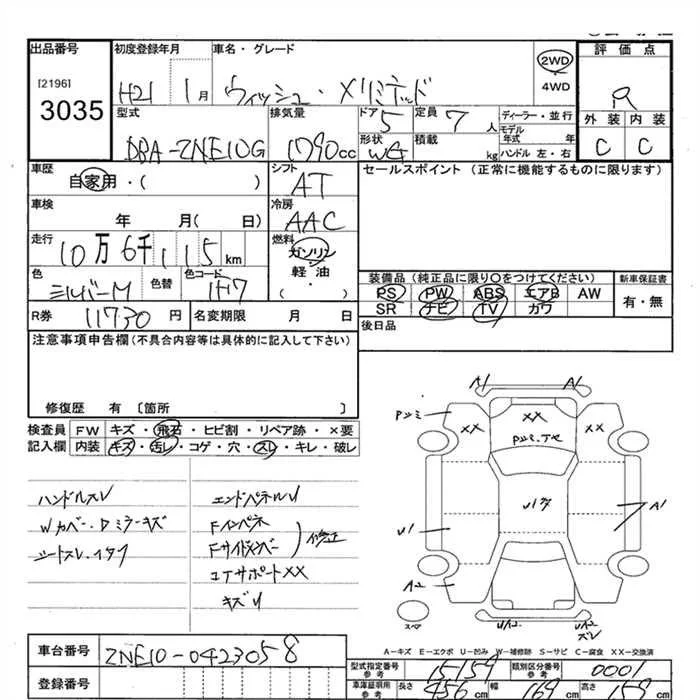 出品番号 初度登録年月 車名・グレード 評価点
[2196]
3035
H21 1月 ウィッシュ・Xリミテッド 2WD
4WD
R
型式 排気量 ドア 5 定員 7人 ディーラー・並行
モデル年式 年
外装 内装
DBA-ZNE10G 1790cc 形状 WG 積載 kg ハンドル 左・右 C C
車歴 シフト セールスポイント (正常に機能するものに限ります)
自家用・( ) AT
車検 冷房
年 月( 日) AAC
走行 燃料
10万6千115km ガソリン
軽油
・( )
色 色替 色コード
シルバーM 1H7
装備品(純正品に限り○をつけてください) 新車保証書
PS PW ABS エアB AW 有・無
SR ナビ TV カワ
R券 11730円 名変期限 月 日
後日品
注意事項申告欄(不具合内容等は具体的に記入して下さい)
修復歴 有 〔箇所 〕
検査員 FW キズ・飛石・ヒビ割・リペア跡・×要
記入欄 内装 キズ・汚レ・コゲ・穴・スレ・キレ・破レ
ハンドルスレ
Wカバー・Dミラーキズ
シートスレ・イタミ
エンドパネルU
Fインパネ
Fサイドメンバー
修正
コアサポートXX
キズU
A1 A1
XX
XX XX
U17
U1
A1
A2
スペア
UA2 UA2
スレ
A-キズ E-エクボ U-凹み W-補修跡 S-サビ C-腐食 XX-交換済
車台番号 ZNE10-0423058
登録番号
型式指定番号 参考 15159 類別区分番号 参考 0001
車庫証明用 参考 長さ 456cm 幅 169cm 高さ 159cm